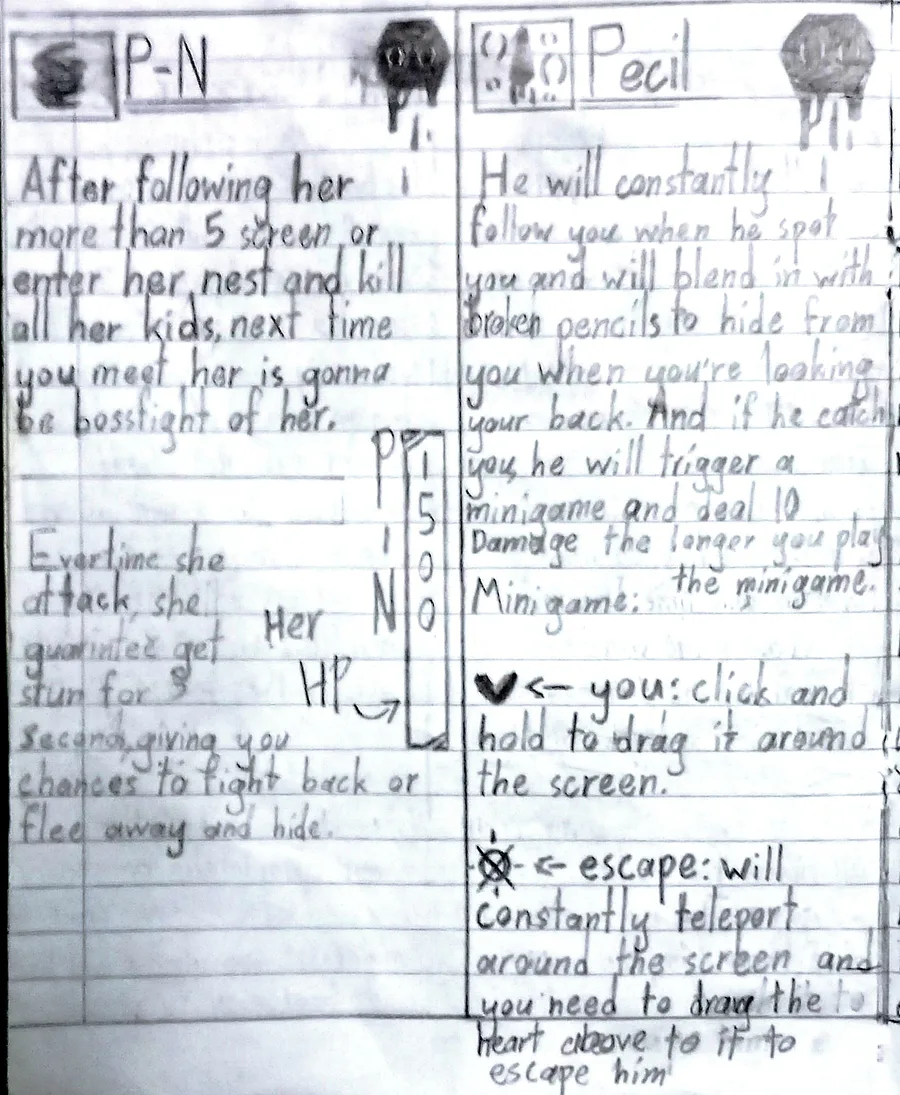 P-N
After following her
more than 5 screen or
enter her nest and kill
all her kids, next time
you meet her is gonna
be bossfight of her.
P I N
1500
Her
HP
Evertime she
attack, she
guarintee get
stun for 3
second, giving you
chances to fight back or
flee away and hide.
Pecil
He will constantly
follow you when he spot
you and will blend in with
broken pencils to hide from
you when you're looking
your back. And if he catch
you, he will trigger a
minigame and deal 10
Damage the longer you play
the minigame.
Minigame:
<- you: click and
hold to drag it around
the screen.
<- escape: will
constantly teleport
around the screen and
you need to drag the to
heart above to it to
escape him